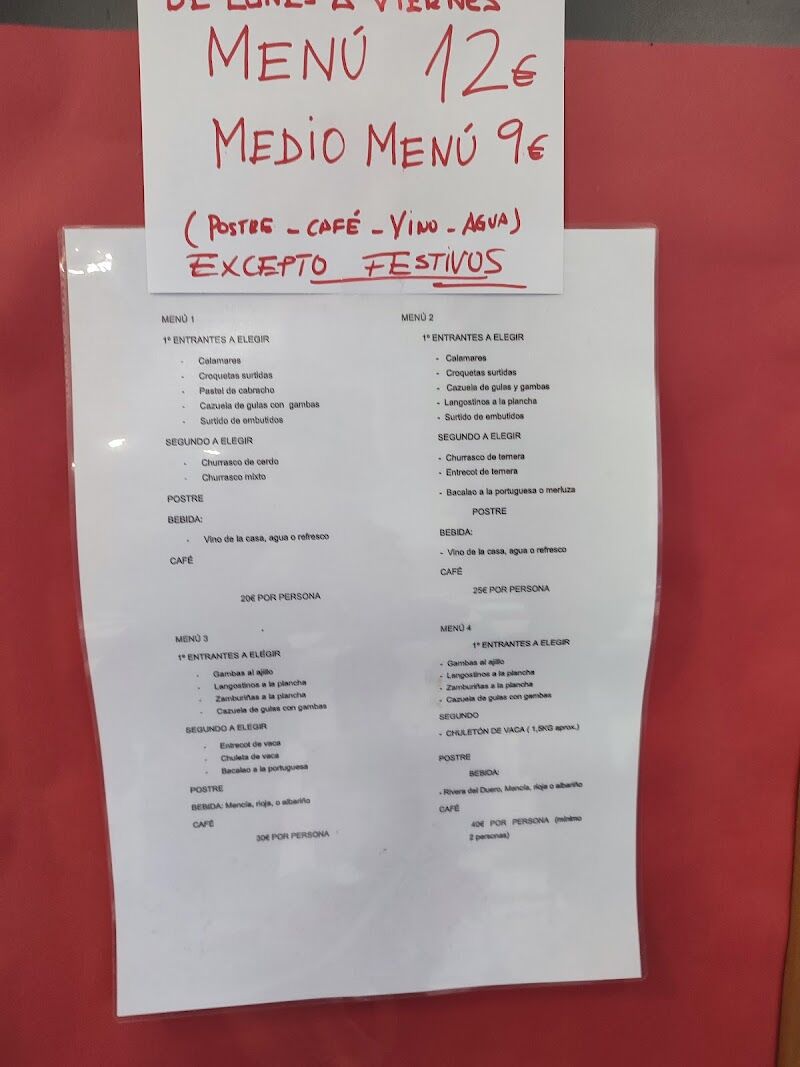 DE LUNES A VIERNES
MENÚ 12€
MEDIO MENÚ 9€
(POSTRE - CAFÉ - VINO - AGUA)
EXCEPTO FESTIVOS
MENÚ 1
1º ENTRANTES A ELEGIR
- Calamares
- Croquetas surtidas
- Pastel de cabracho
- Cazuela de gulas con gambas
- Surtido de embutidos
SEGUNDO A ELEGIR
- Churrasco de cerdo
- Churrasco mixto
POSTRE
BEBIDA:
- Vino de la casa, agua o refresco
CAFÉ
20€ POR PERSONA
MENÚ 2
1º ENTRANTES A ELEGIR
- Calamares
- Croquetas surtidas
- Cazuela de gulas y gambas
- Langostinos a la plancha
- Surtido de embutidos
SEGUNDO A ELEGIR
- Churrasco de ternera
- Entrecot de ternera
- Bacalao a la portuguesa o merluza
POSTRE
BEBIDA:
- Vino de la casa, agua o refresco
CAFÉ
25€ POR PERSONA
MENÚ 3
1º ENTRANTES A ELEGIR
- Gambas al ajillo
- Langostinos a la plancha
- Zamburiñas a la plancha
- Cazuela de gulas con gambas
SEGUNDO A ELEGIR
- Entrecot de vaca
- Chuleta de vaca
- Bacalao a la portuguesa
POSTRE
BEBIDA: Mencía, rioja, o albariño
CAFÉ
30€ POR PERSONA
MENÚ 4
1º ENTRANTES A ELEGIR
- Gambas al ajillo
- Langostinos a la plancha
- Zamburiñas a la plancha
- Cazuela de gulas con gambas
SEGUNDO
- CHULETÓN DE VACA ( 1,5KG aprox.)
POSTRE
BEBIDA:
- Rivera del Duero, Mencía, rioja o albariño
CAFÉ
40€ POR PERSONA (mínimo
2 personas)